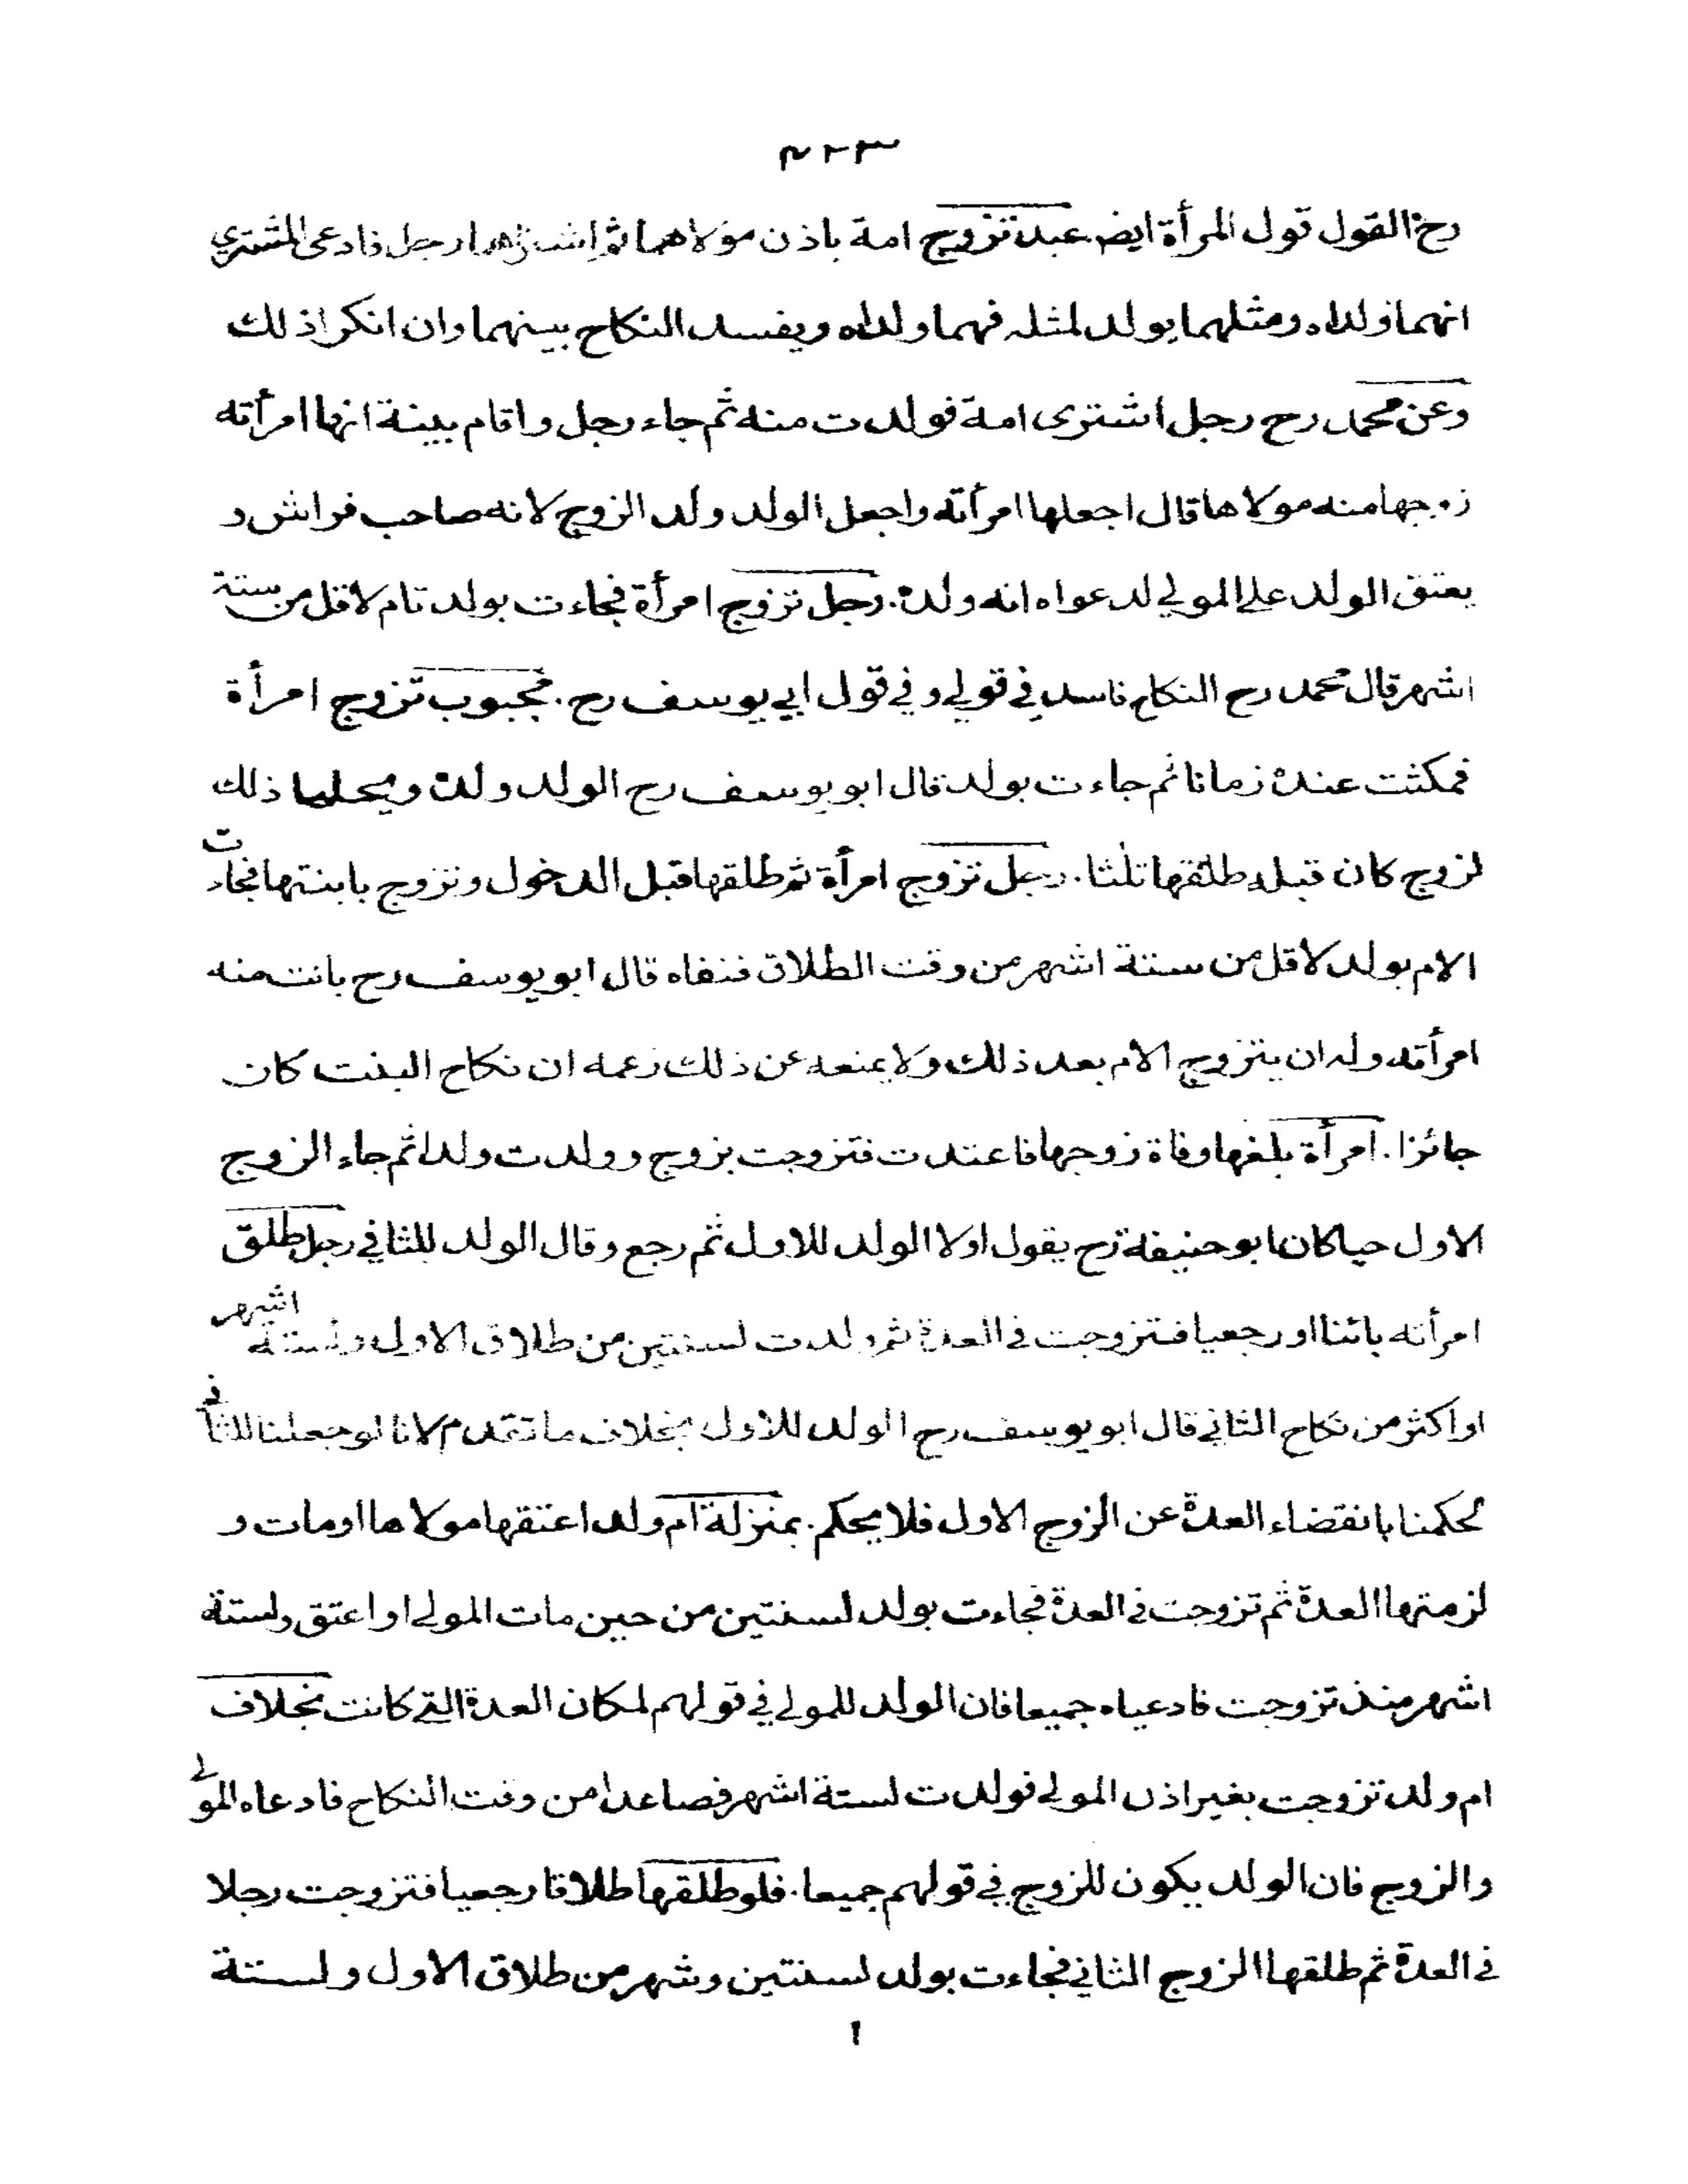 ٤٢٣
رح القول قول المرأة ايض عبد تزوج امة باذن مولاهما ثم اشتراهما رجل فادعى المشتري
انهما ولداه ومثلهما يولد لمثله فهما ولداه ويفسد النكاح بينهما وان انكرا ذلك
وعن محمد رح رجل اشترى امة فولدت منه ثم جاء رجل واقام بينة انها امرأته
زوجها منه مولاها قال اجعلها امرأته واجعل الولد ولد الزوج لانه صاحب فراش و
يعتق الولد على المولى لدعواه انه ولده . رجل تزوج امرأة فجاءت بولد تام لاقل من ستة
اشهر قال محمد رح النكاح فاسد في قولي وفي قول ابي يوسف رح . مجبوب تزوج امرأة
فمكثت عنده زمانا ثم جاءت بولد قال ابو يوسف رح الولد ولده ويحلها ذلك
لزوج كان قبله طلقها ثلثا . رجل تزوج امرأة ثم طلقها قبل الدخول وتزوج بابنتها فجاءت
الام بولد لاقل من ستة اشهر من وقت الطلاق فنفاه قال ابو يوسف رح بانت منه
امرأته وله ان يتزوج الام بعد ذلك ولا يمنعه عن ذلك زعمه ان نكاح البنت كان
جائزا . امرأة بلغها وفاة زوجها فاعتدت فتزوجت بزوج وولدت ولدا ثم جاء الزوج
الاول حيا كان ابو حنيفة رح يقول اولا الولد للاول ثم رجع وقال الولد للثاني رجل طلق
امرأته بائنا او رجعيا فتزوجت في العدة ثم ولدت لسنتين من طلاق الاول ولستة اشهر
او اكثر من نكاح الثاني قال ابو يوسف رح الولد للاول بخلاف ما تقدم لانا لو جعلنا للثاني
لحكمنا بانقضاء العدة عن الزوج الاول فلا يحكم . بمنزلة ام ولد اعتقها مولاها او مات و
لزمتها العدة ثم تزوجت في العدة فجاءت بولد لسنتين من حين مات المولى او اعتق ولستة
اشهر منذ تزوجت فادعياه جميعا فان الولد للمولى في قولهم لمكان العدة التي كانت بخلاف
ام ولد تزوجت بغير اذن المولى فولدت لستة اشهر فصاعدا من وقت النكاح فادعاه المولى
والزوج فان الولد يكون للزوج في قولهم جميعا . فلو طلقها طلاقا رجعيا فتزوجت رجلا
في العدة ثم طلقها الزوج الثاني فجاءت بولد لسنتين وشهر من طلاق الاول ولستة